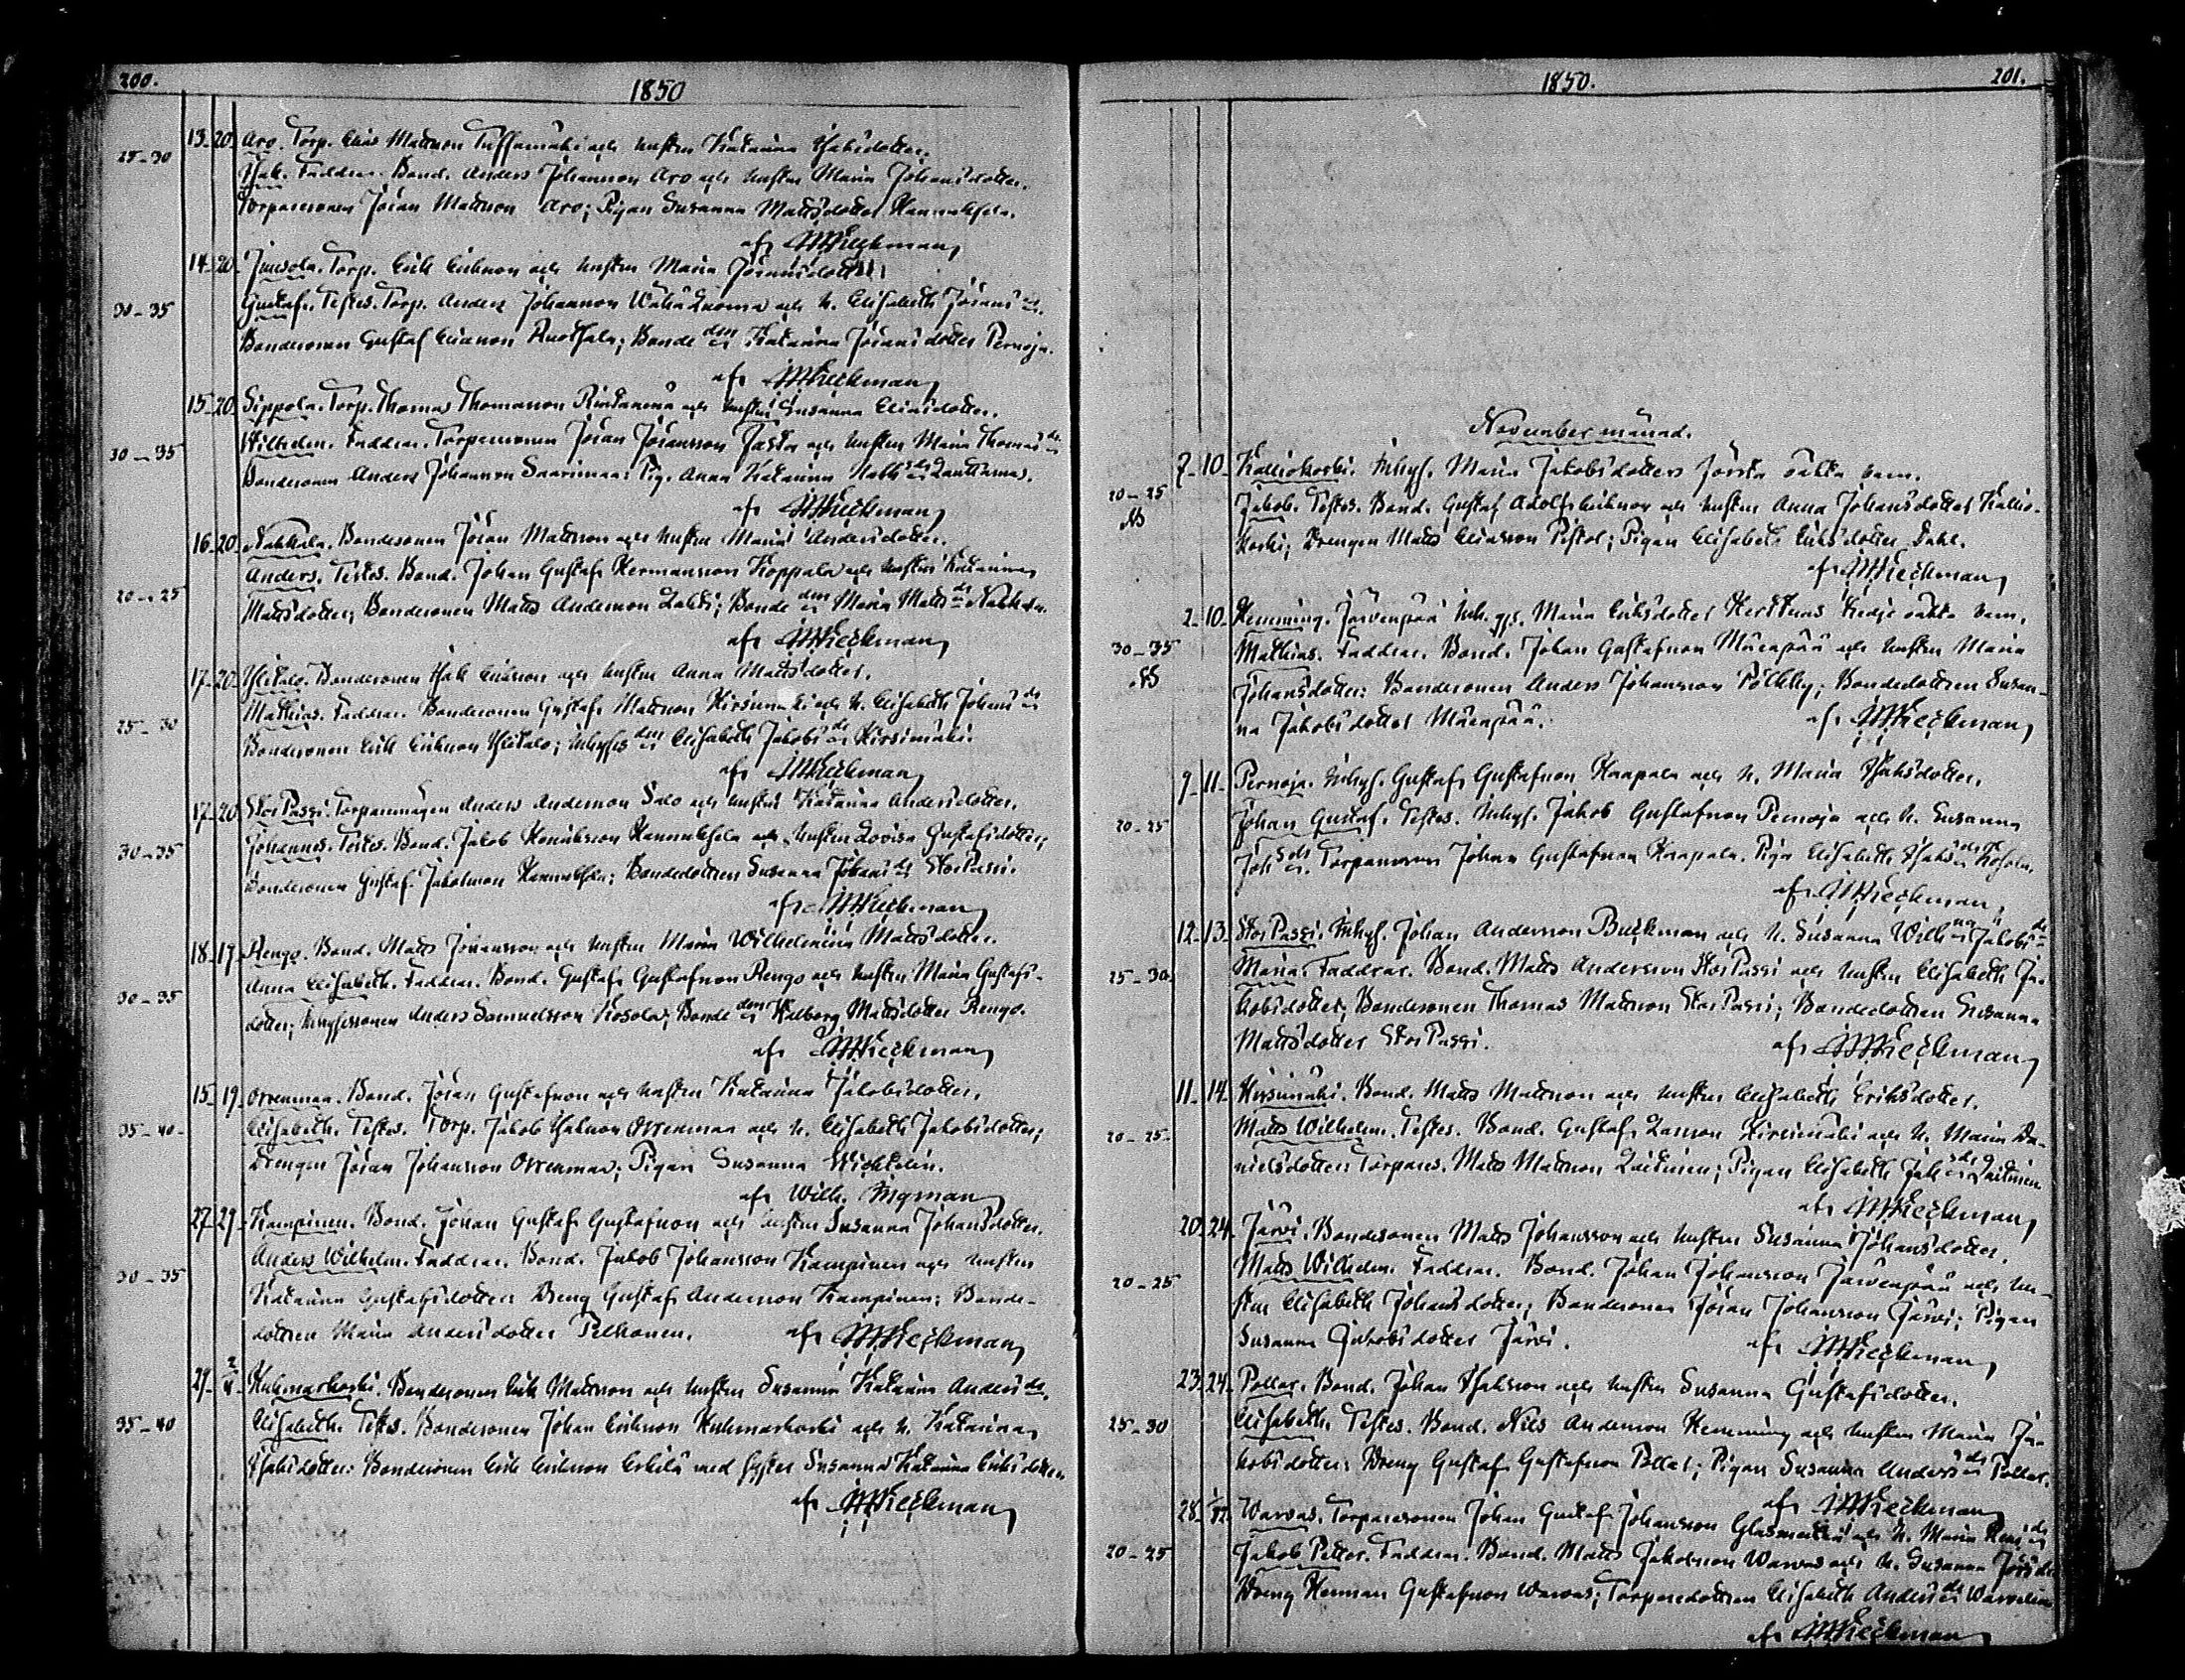 200.
1850
25-30
13. 20. Aro. Torp. Elias Mattsson och hustru Katarina Isaksdotter.
Isak. Faddrar. Bond. Anders Johansson Aro och hustru Maria Johansdotter.
Torparesonen Jöran Mattsson Aro; Pigan Susanna Mattsdotter Hannuksela.
af Wieckman
30-35
14. 20. Jussola. Torp. Erik Eriksson och hustru Maria Jöransdotter
Gustaf. Testes. Torp. Anders Johansson och h. Elisabeth Jörans dr.
Bondesonen Gustaf Eliasson Ruotsala; Bonde den Katarina Jöransdotter Pernoja.
af Wieckman
30-35
15. 20. Sippola. Torp. Thomas Thomasson Rintanen och hustru Susanna Eliasdotter.
Wilhelm. Faddrar. Torparesonen Jöran Jöransson och hustru Maria Thomas dr
Bondesonen Anders Johansson Saarimaa; Pig. Anna Katarina Matts dr
af Wieckman
20-25
16. 20. Nahkala. Bondesonen Jöran Mattsson och hustru Maria Andersdotter.
Anders. Testes. Bond. Johan Gustaf Hermansson Koppala och hustru Katarina
Mattsdotter; Bondesonen Matts Andersson Lahti; Bonde den Maria Matts dr Nahkala.
af Wieckman
25-30
17. 20. Ylitalo. Bondesonen Isak Eriksson och hustru Anna Mattsdotter.
Mathias. Faddrar. Bondesonen Gustaf Mattsson Hirsimäki och h. Elisabeth Johans dr
Bondesonen Erik Eriksson Ylitalo; Inhyses den Elisabeth Jakobs dr Hirsimäki.
af Wieckman
30-35
17. 20. StorPassi. Torparemågen Anders Andersson Salo och hustru Katarina Andersdotter.
Johannes. Testes. Bond. Jakob Henriksson Hannuksela och hustru Lovisa Gustafsdotter;
Bondesonen Gustaf Jakobsson Hannuksela; Bondedottren Susanna Johans dr StorPassi.
af Wieckman
30-35
18. 17. Rengo. Bond. Matts Jöransson och hustru Maria Wilhelmina Mattsdotter.
Anna Elisabeth. Faddrar. Bond. Gustaf Gustafsson Rengo och hustru Maria Gustafs-
dotter; Inhysessonen Anders Samuelsson Kosola; Bonde den Walborg Mattsdotter Rengo.
af Wieckman
35-40
15. 19. Orrenmaa. Bond. Jöran Gustafsson och hustru Katarina Jakobsdotter.
Elisabeth. Testes. Torp. Jakob Isaksson Orrenmaa och h. Elisabeth Jakobsdotter;
Drengen Jöran Johansson Orrenmaa; Pigan Susanna Wichtolin.
af Wilh. Ingman
30-35
27. 29. Kampinen. Bond. Johan Gustaf Gustafsson och hustru Susanna Johansdotter.
Anders Wilhelm. Faddrar. Bond. Jakob Johansson Kampinen och hustru
Katarina Gustafsdotter; Dreng Gustaf Andersson Kampinen; Bonde-
dottren Maria Andersdotter Pelkonen. af Wieckman
35-40
29. Kuhmarkoski. Bondesonen Erik Mattsson och hustru Susanna Katarina Anders dr.
Elisabeth. Testes. Bondesonen Johan Eriksson Kuhmarkoski och h. Katarina
Isaksdotter; Bondesonen Erik Eriksson Erkilä med syster Susanna Katarina Eriksdotter
af Wieckman
1850.
201.
November månad.
20-25
NB
7. 10. Kalliokoski. Inhys. Maria Jakobsdotters första oäkta barn.
Jakob. Testes. Bond. Gustaf Adolf Eriksson och hustru Anna Johansdotter Kallio-
koski; Drengen Matts Eliasson Pistol; Pigan Elisabeth Eriksdotter Dahl.
af Wieckman
30-35
NB
2. 10. Hemming. Järvenpää Inh. Maria Eriksdotter Herttuas tredje oäkta barn.
Mathias. Faddrar. Bond. Johan Gustafsson Mäenpää och hustru Maria
Johansdotter; Bondesonen Anders Johansson Pölkky; Bondedottren Susan-
na Jakobsdotter Mäenpää. af Wieckman
20-25
9. 11. Pernoja. Inhys. Gustaf Gustafsson Haapala och h. Maria Isaksdotter.
Johan Gustaf. Testes. Inhys. Jakob Gustafsson Pernoja och h. Susanna
Joh s dr. Torparesonen Johan Gustafsson Haapala. Piga Elisabeth Isaks dr Kosola.
af Wieckman
25-30
12. 13. StorPassi. Inhys. Johan Andersson Buckman och h. Susanna Wilh na Jakobs dr
Maria. Faddrar. Bond. Matts Andersson StorPassi och hustru Elisabeth Ja-
kobsdotter; Bondesonen Thomas Mattsson StorPassi; Bondedottren Susanna
Mattsdotter StorPassi. af Wieckman
20-25
11. 14. Hirsimäki. Bond. Matts Mattsson och hustru Elisabeth Eriksdotter.
Matts Wilhelm. Testes. Bond. Gustaf Larsson Hirsimäki och h. Maria Da-
nielsdotter; Torpares. Matts Mattsson Laitinen; Pigan Elisabeth Isak s dr Laitinen
af Wieckman
20-25
20. 24. Järvi. Bondesonen Matts Johansson och hustru Susanna Johansdotter.
Matts Wilhelm. Faddrar. Bond. Johan Johansson Järvenpää och hu-
stru Elisabeth Johansdotter; Bondesonen Jöran Johansson Järvi; Pigan
Susanna Jakobsdotter Järvi. af Wieckman
25-30
23. 24. Pollar. Bond. Johan Isaksson och hustru Susanna Gustafsdotter.
Elisabeth. Testes. Bond. Nils Andersson Hemming och hustru Maria Ja-
kobsdotter; Dreng Gustaf Gustafsson Pollar; Pigan Susanna Anders dr Pollar.
af Wieckman
20-25
28. 1/12. Warvas. Torparesonen Johan Gustaf Johansson och h. Maria dr
Jakob Petter. Faddrar. Bond. Matts Jakobsson Warvas och h. Susanna Jörs dr
Dreng Herman Gustafsson Warvas; Torparedottren Elisabeth Anders dr Warvelin
af Wieckman